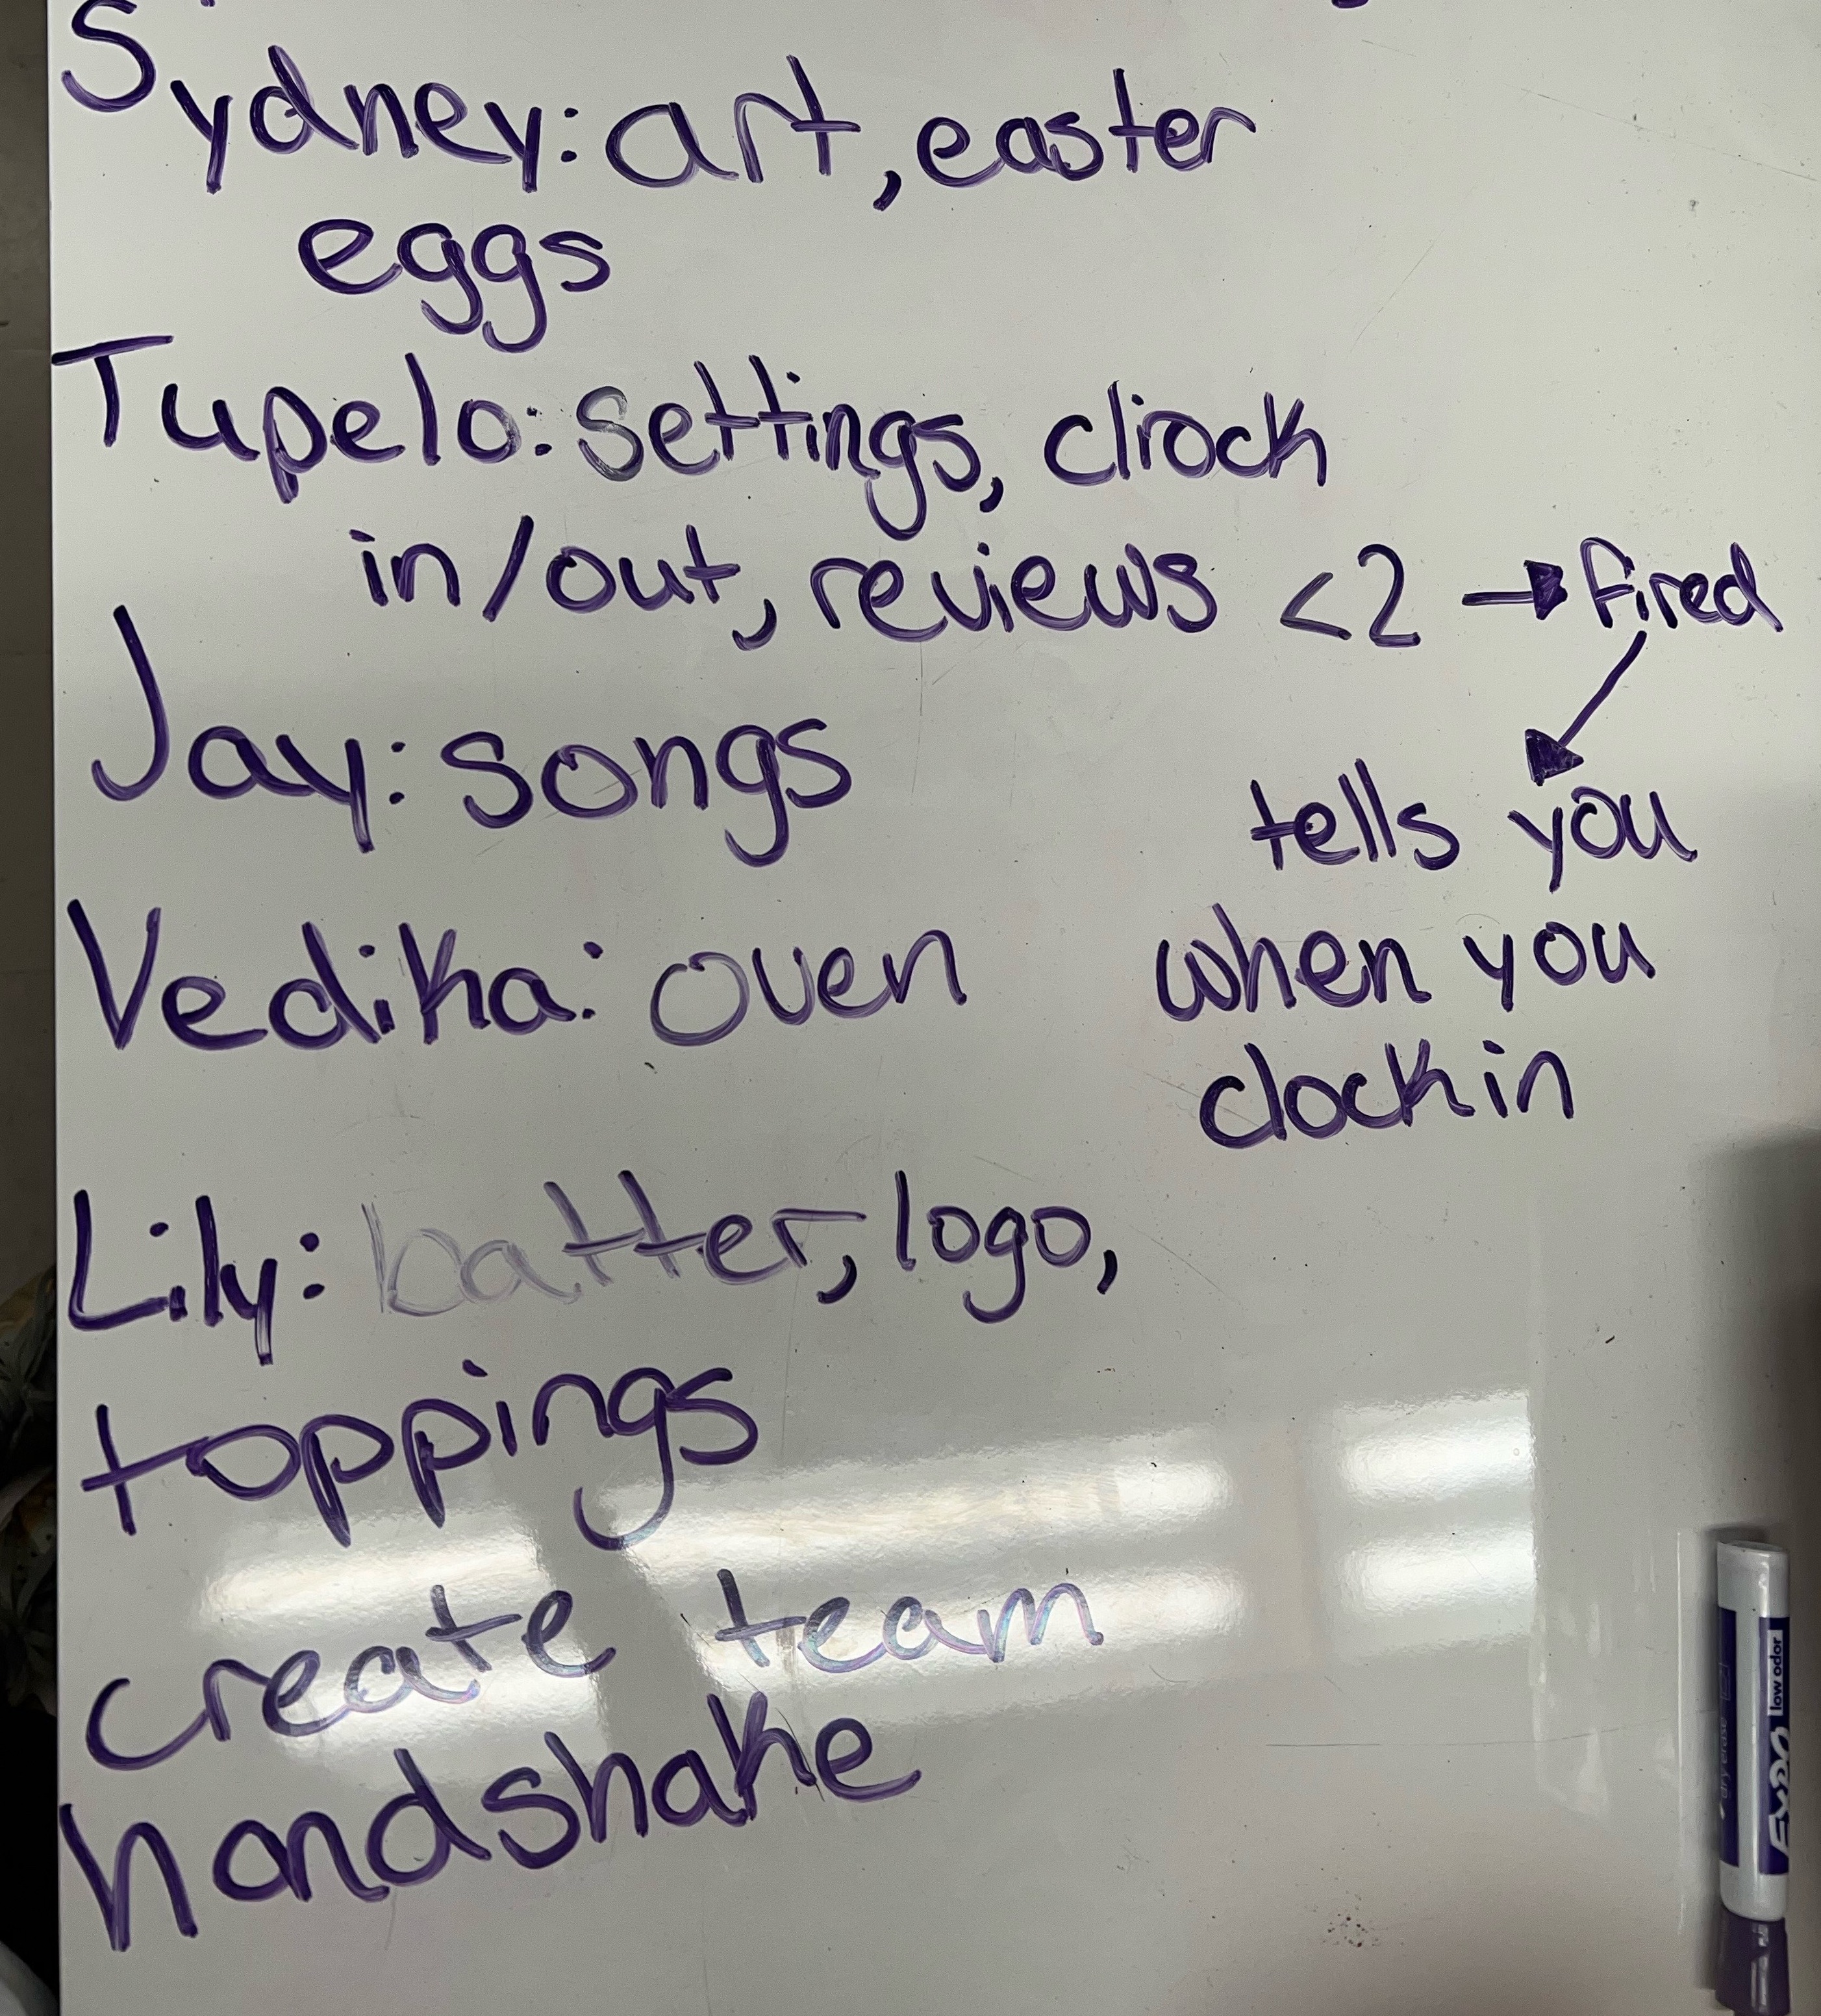 Sydney: art, easter
eggs
Tupelo: settings, clrock
in/out, reviews <2 → fired
tells you
when you
clock in
Jay: songs
Vedika: oven
Lily: batter, logo,
toppings
create team
handshake
EXPO low odor
dry erase